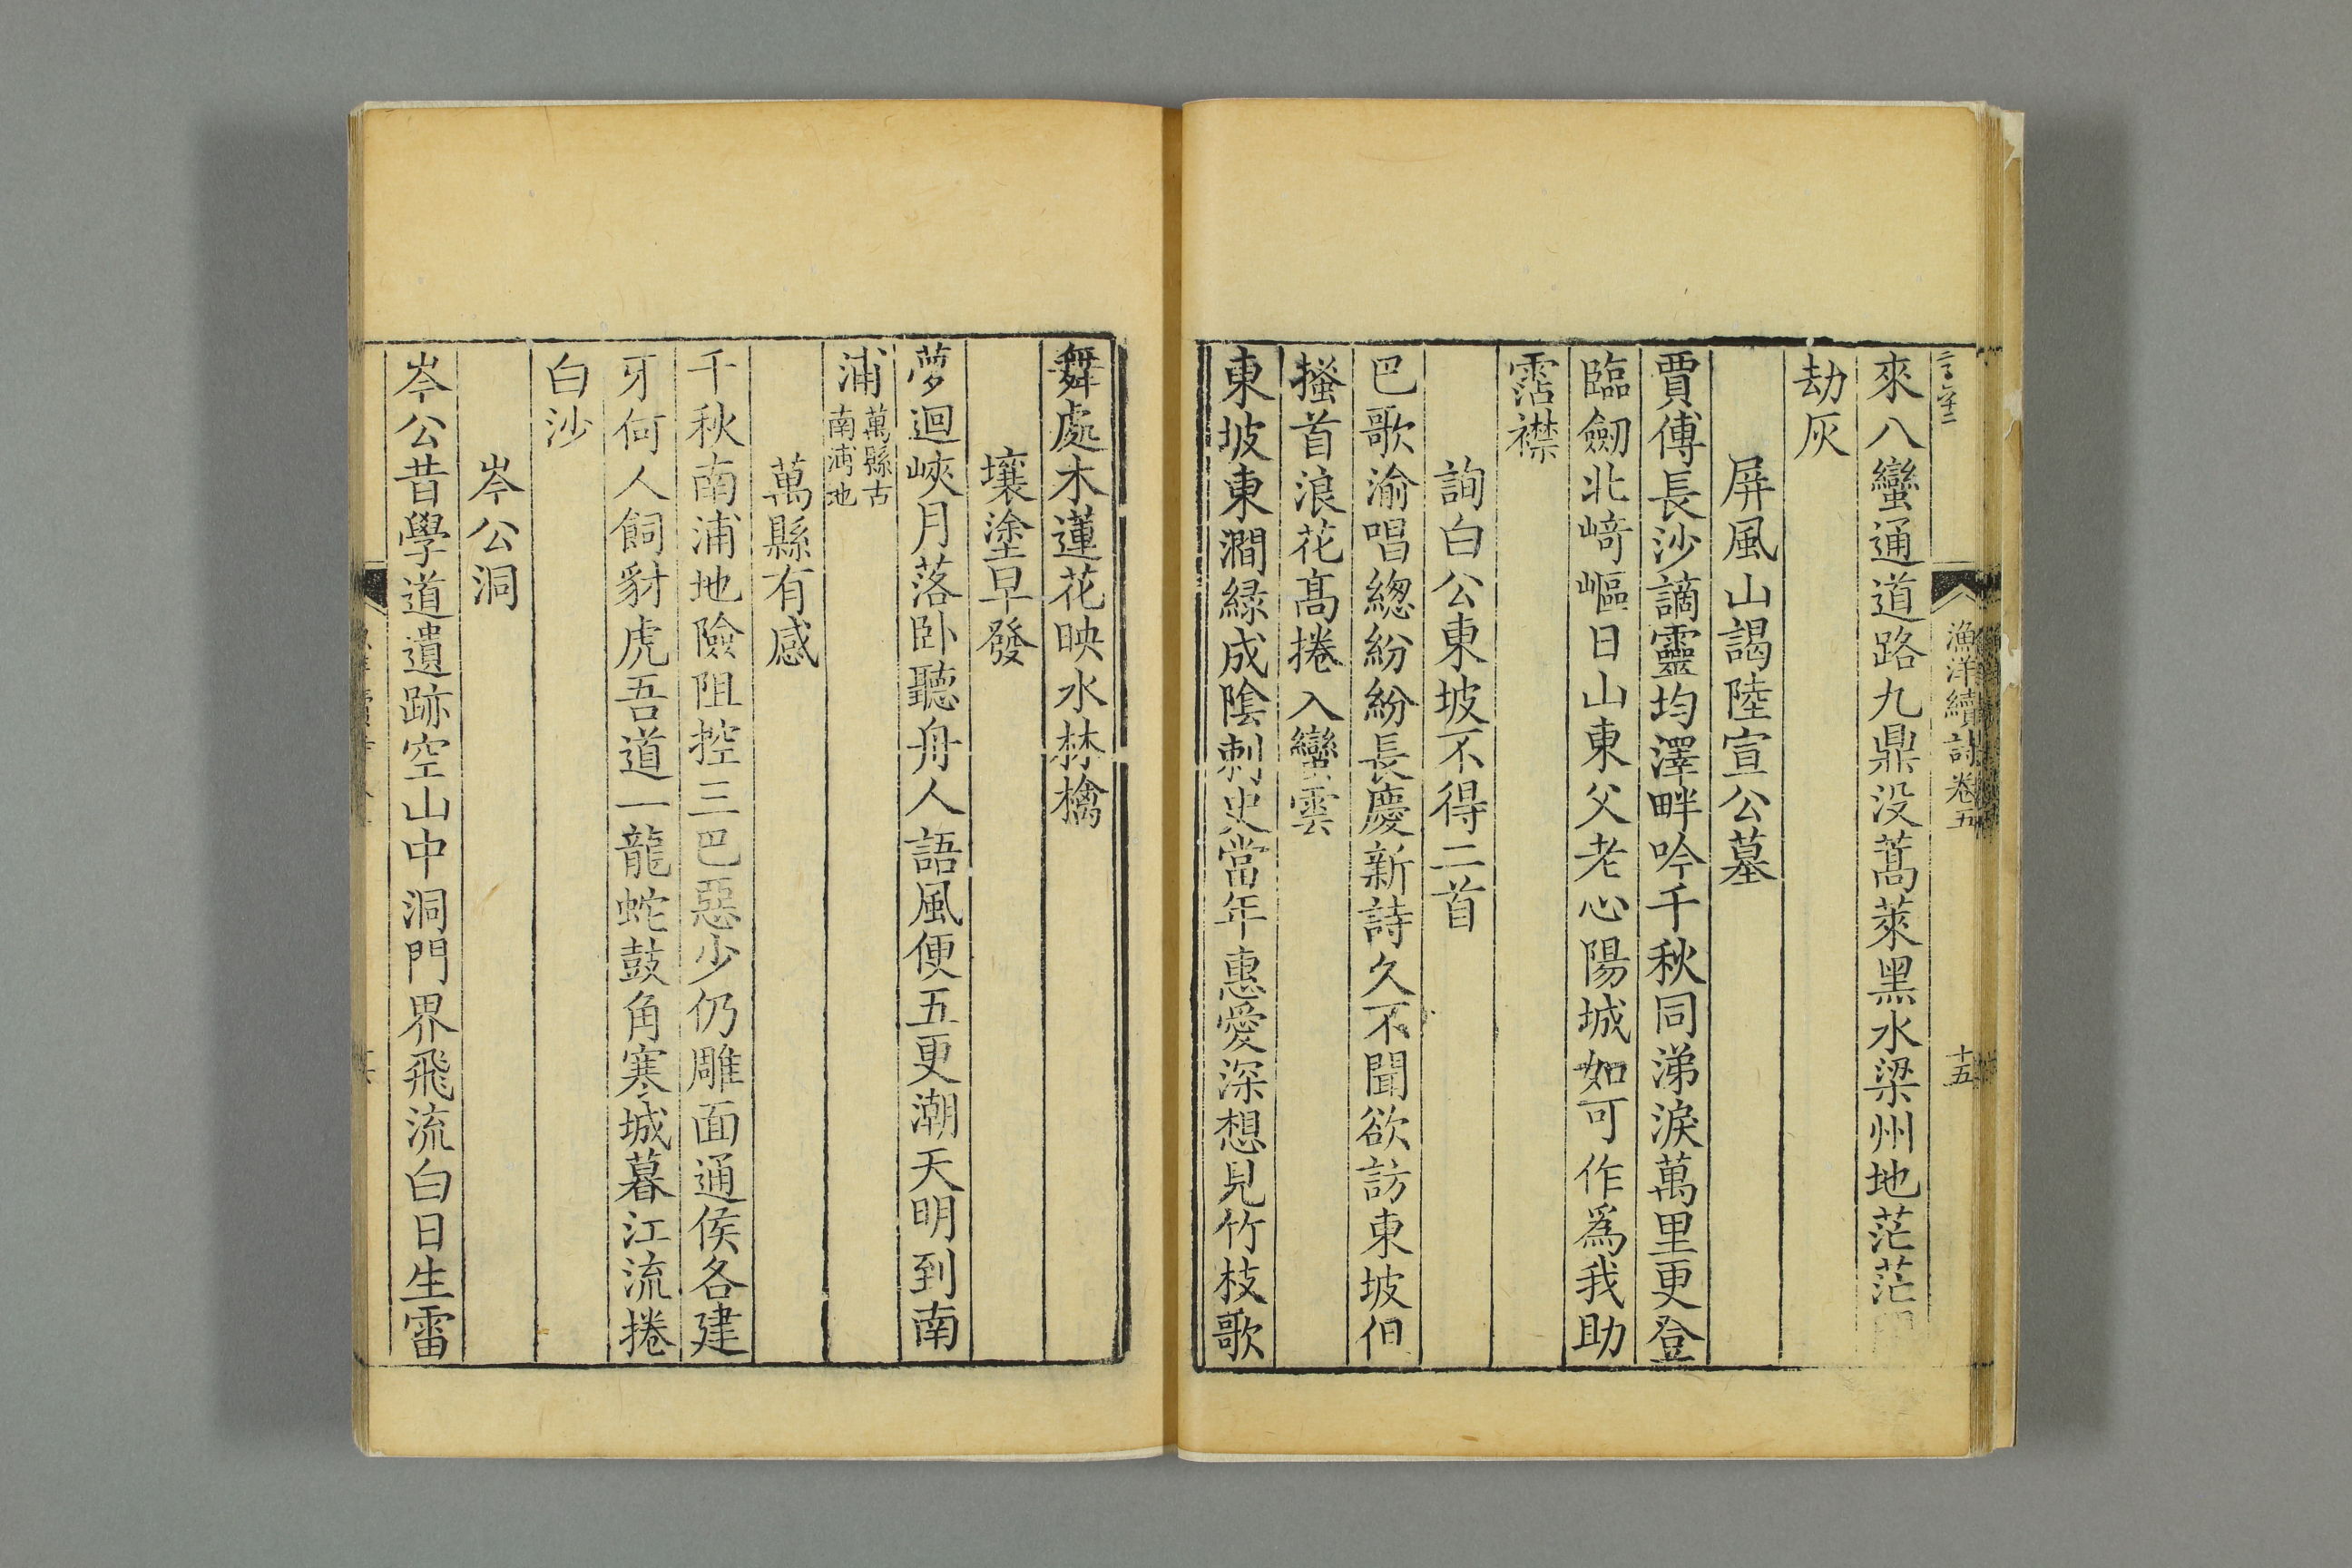 漁洋續詩卷五
十五
來八蠻通道路九鼎没蒿萊黑水梁州地茫茫
劫灰
屏風山謁陸宣公墓
賈傅長沙謫靈均澤畔吟千秋同涕淚萬里更登
臨劒北崎嶇日山東父老心陽城如可作爲我助
霑襟
詢白公東坡不得二首
巴歌渝唱總紛紛長慶新詩久不聞欲訪東坡但
搔首浪花髙捲入蠻雲
東坡東澗緑成陰刺史當年惠愛深想見竹枝歌
舞處木蓮花映水林檎
壤塗早發
夢迴峽月落卧聽舟人語風便五更潮天明到南
浦萬縣古南浦地
萬縣有感
千秋南浦地險阻控三巴惡少仍雕面通侯各建
牙何人飼豺虎吾道一龍蛇鼓角寒城暮江流捲
白沙
岑公洞
岑公昔學道遺跡空山中洞門界飛流白日生雷